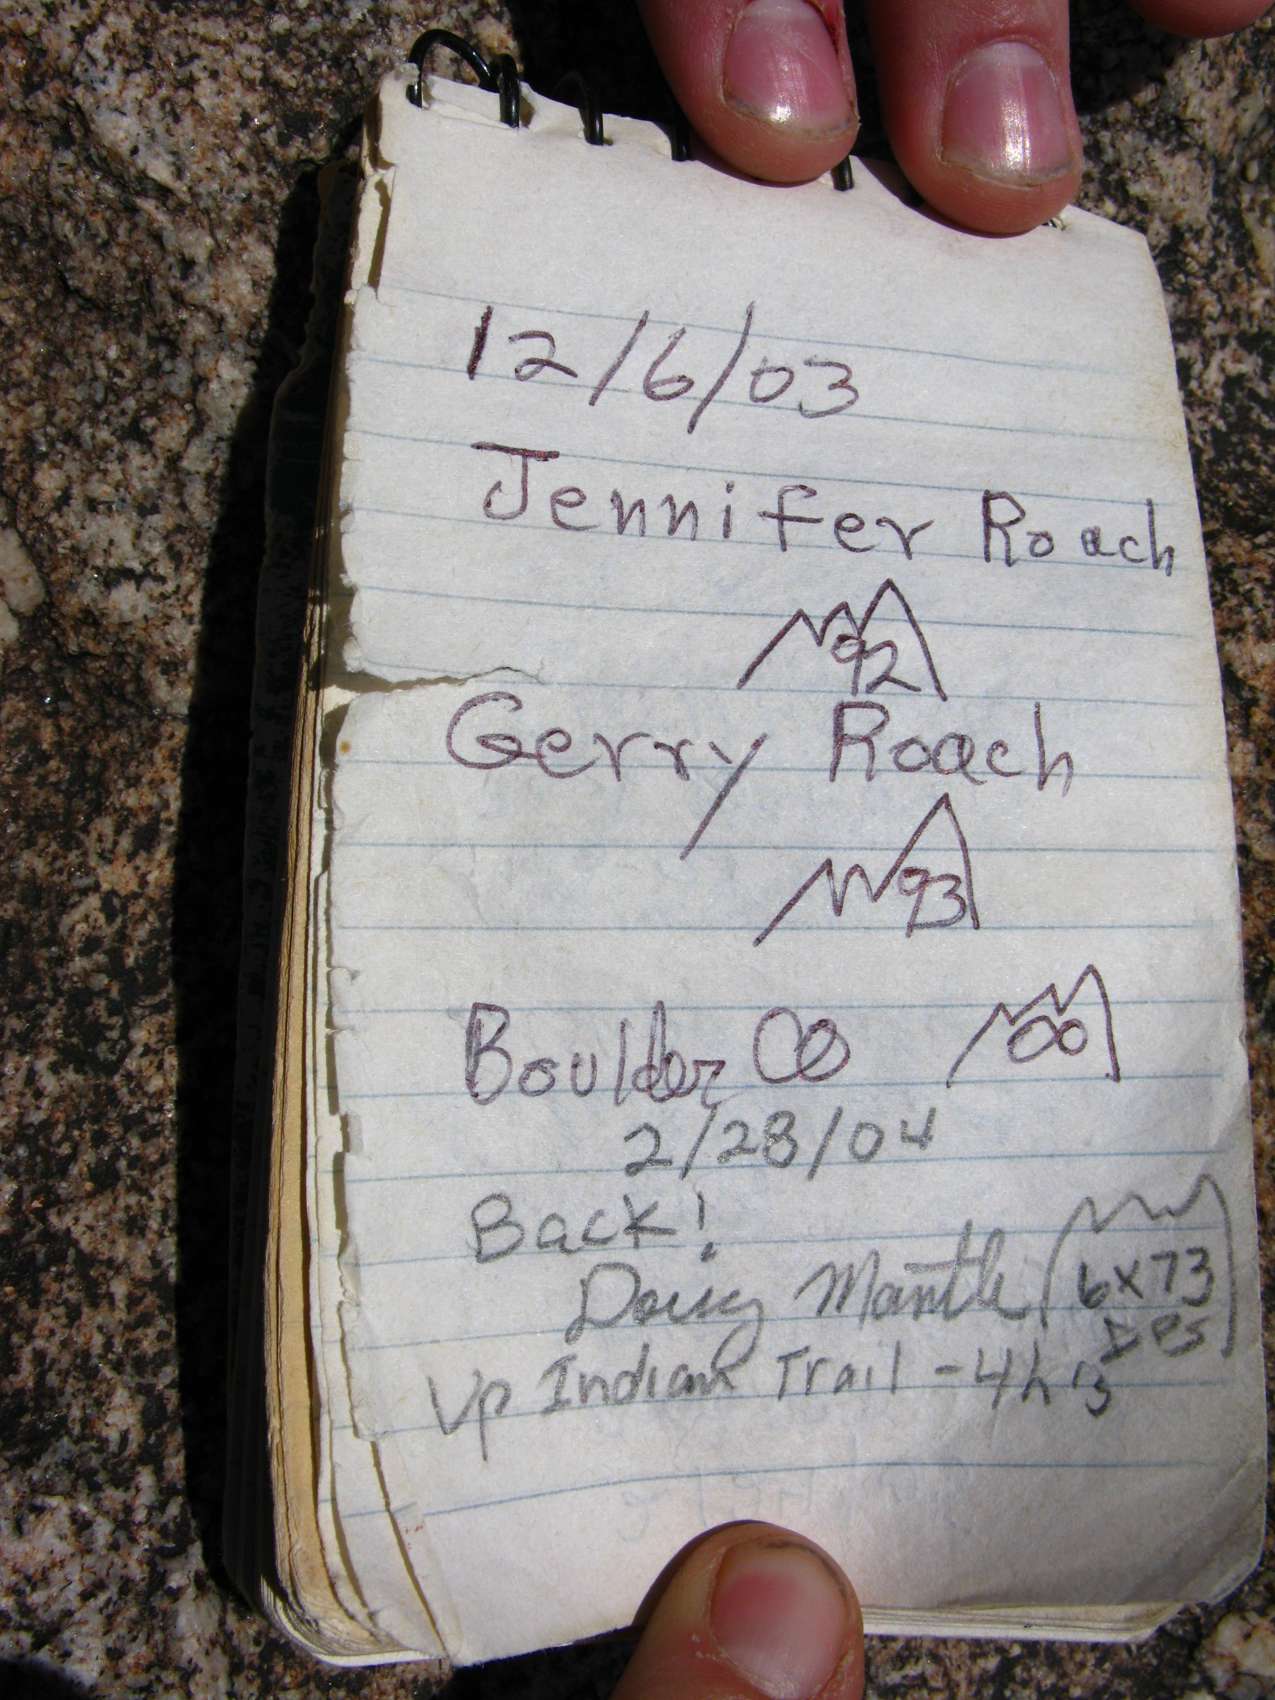 12/6/03
Jennifer Roach
92
Gerry Roach
93
Boulder CO
00
2/28/04
Back!
Doug Mantle
6x73
DPS
Up Indian Trail - 4hrs